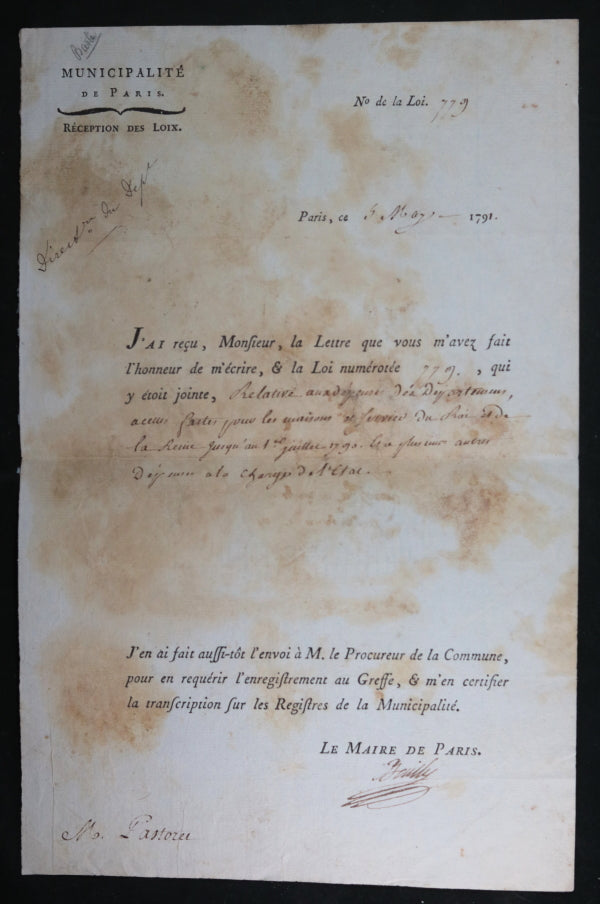 MUNICIPALITÉ
DE PARIS.
RÉCEPTION DES LOIX.
No de la Loi. 779
du Dept
Paris, ce 5 May 1791.
J'AI reçu, Monſieur, la Lettre que vous m'avez fait
l'honneur de m'écrire, & la Loi numérotée 779. , qui
y étoit jointe, Relative aux dépenses des Départemens,
a celles faites pour les maisons et Service du Roi et de
la Reine jusqu'au 1er juillet 1790. Et a plusieurs autres
Dépenses a la Charge de l'Etat.
J'en ai fait auſſi-tôt l'envoi à M. le Procureur de la Commune,
pour en requérir l'enregiſtrement au Greffe, & m'en certifier
la tranſcription ſur les Regiſtres de la Municipalité.
LE MAIRE DE PARIS.
Bailly
M. Pastoret